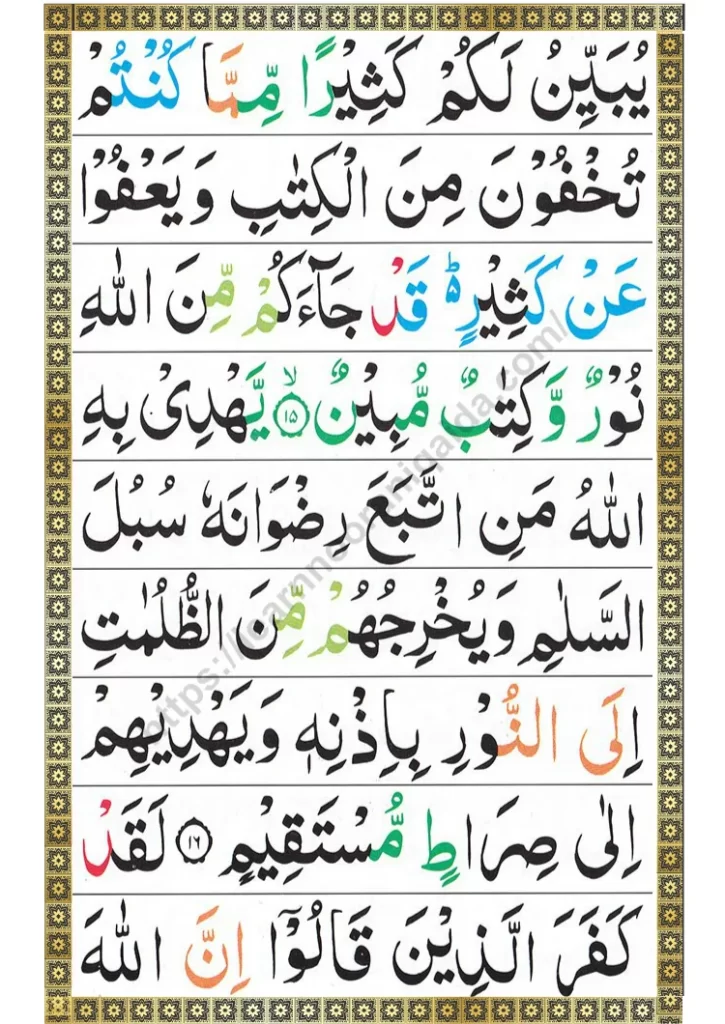 يُبَيِّنُ لَكُمْ كَثِيْرًا مِّمَّا كُنْتُمْ
تُخْفُوْنَ مِنَ الْكِتٰبِ وَيَعْفُوْا
عَنْ كَثِيْرٍ ؕ۬ قَدْ جَآءَكُمْ مِّنَ اللّٰهِ
نُوْرٌ وَّكِتٰبٌ مُّبِيْنٌ ۙ﴿۱۵﴾ يَّهْدِيْ بِهِ
اللّٰهُ مَنِ اتَّبَعَ رِضْوَانَهٗ سُبُلَ
السَّلٰمِ وَيُخْرِجُهُمْ مِّنَ الظُّلُمٰتِ
اِلَى النُّوْرِ بِاِذْنِهٖ وَيَهْدِيْهِمْ
اِلٰى صِرَاطٍ مُّسْتَقِيْمٍ ﴿۱۶﴾ لَقَدْ
كَفَرَ الَّذِيْنَ قَالُوْٓا اِنَّ اللّٰهَ
https://learnnooraniqaida.com/